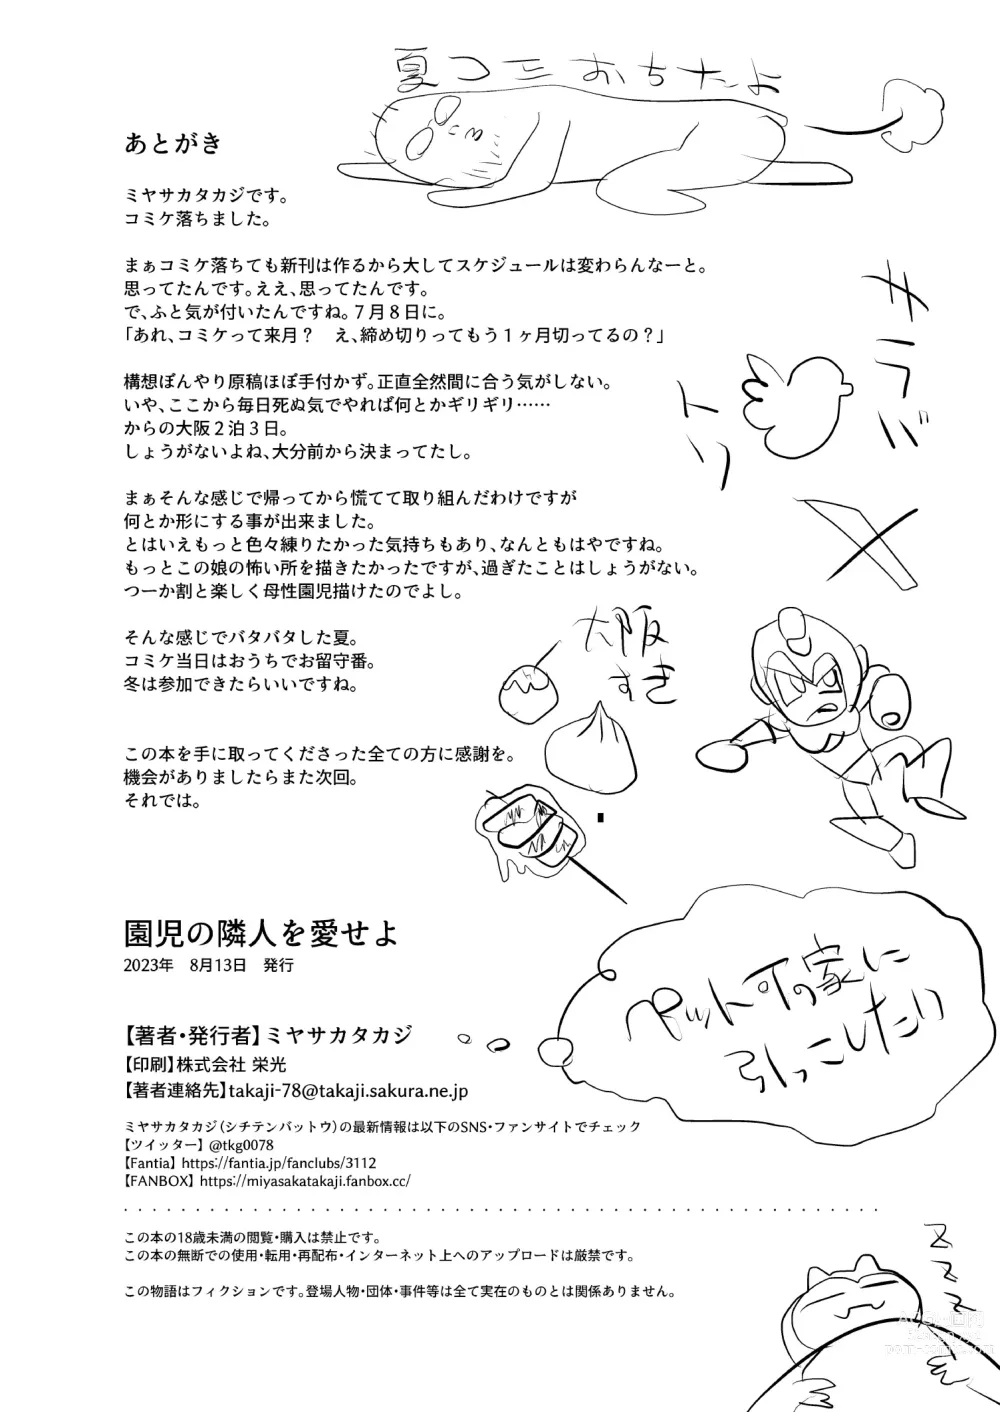 夏コミおちたよ
あとがき
ミヤサカタカジです。
コミケ落ちました。
まぁコミケ落ちても新刊は作るから大してスケジュールは変わらんなーと。
思ってたんです。ええ、思ってたんです。
で、ふと気が付いたんですね。７月８日に。
「あれ、コミケって来月？　え、締め切りってもう１ヶ月切ってるの？」
構想ぼんやり原稿ほぼ手付かず。正直全然間に合う気がしない。
いや、ここから毎日死ぬ気でやれば何とかギリギリ……
からの大阪２泊３日。
しょうがないよね、大分前から決まってたし。
まぁそんな感じで帰ってから慌てて取り組んだわけですが
何とか形にする事が出来ました。
とはいえもっと色々練りたかった気持ちもあり、なんともはやですね。
もっとこの娘の怖い所を描きたかったですが、過ぎたことはしょうがない。
つーか割と楽しく母性園児描けたのでよし。
そんな感じでバタバタした夏。
コミケ当日はおうちでお留守番。
冬は参加できたらいいですね。
この本を手に取ってくださった全ての方に感謝を。
機会がありましたらまた次回。
それでは。
サラバ
トリ
大阪
すき
園児の隣人を愛せよ
2023年　8月13日　発行
【著者・発行者】ミヤサカタカジ
【印刷】株式会社 栄光
【著者連絡先】takaji-78@takaji.sakura.ne.jp
ペット可の家に
引っこしたい
ミヤサカタカジ（シチテンバットウ）の最新情報は以下のSNS・ファンサイトでチェック
【ツイッター】 @tkg0078
【Fantia】 https://fantia.jp/fanclubs/3112
【FANBOX】 https://miyasakatakaji.fanbox.cc/
この本の18歳未満の閲覧・購入は禁止です。
この本の無断での使用・転用・再配布・インターネット上へのアップロードは厳禁です。
この物語はフィクションです。登場人物・団体・事件等は全て実在のものとは関係ありません。
Z
Z
Z